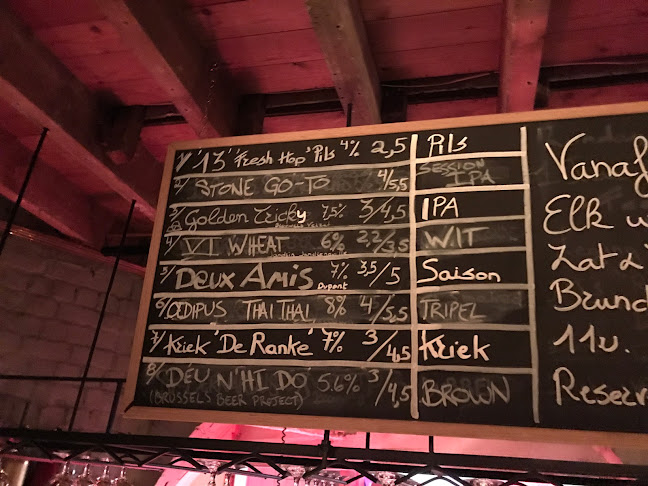 1/ '13' Fresh Hop Pils 4% 2,5 Pils
2/ STONE GO-TO 4/5,5 SESSION IPA
3/ Golden Tricky 7,5% 3/4,5 IPA
4/ VI WHEAT 6% 2,2/3,5 WIT
5/ Deux Amis 7% 3,5/5 Saison
Dupont
6/ OEDIPUS THAI THAI 8% 4/5,5 TRIPEL
7/ Kriek 'De Ranke' 7% 3/4,5 Kriek
8/ DÉU N'HI DO 5.6% 3/4,5 BROWN
(BRUSSELS BEER PROJECT)
Vanaf
Elk w
Zat &
Brund
11u.
Reserv